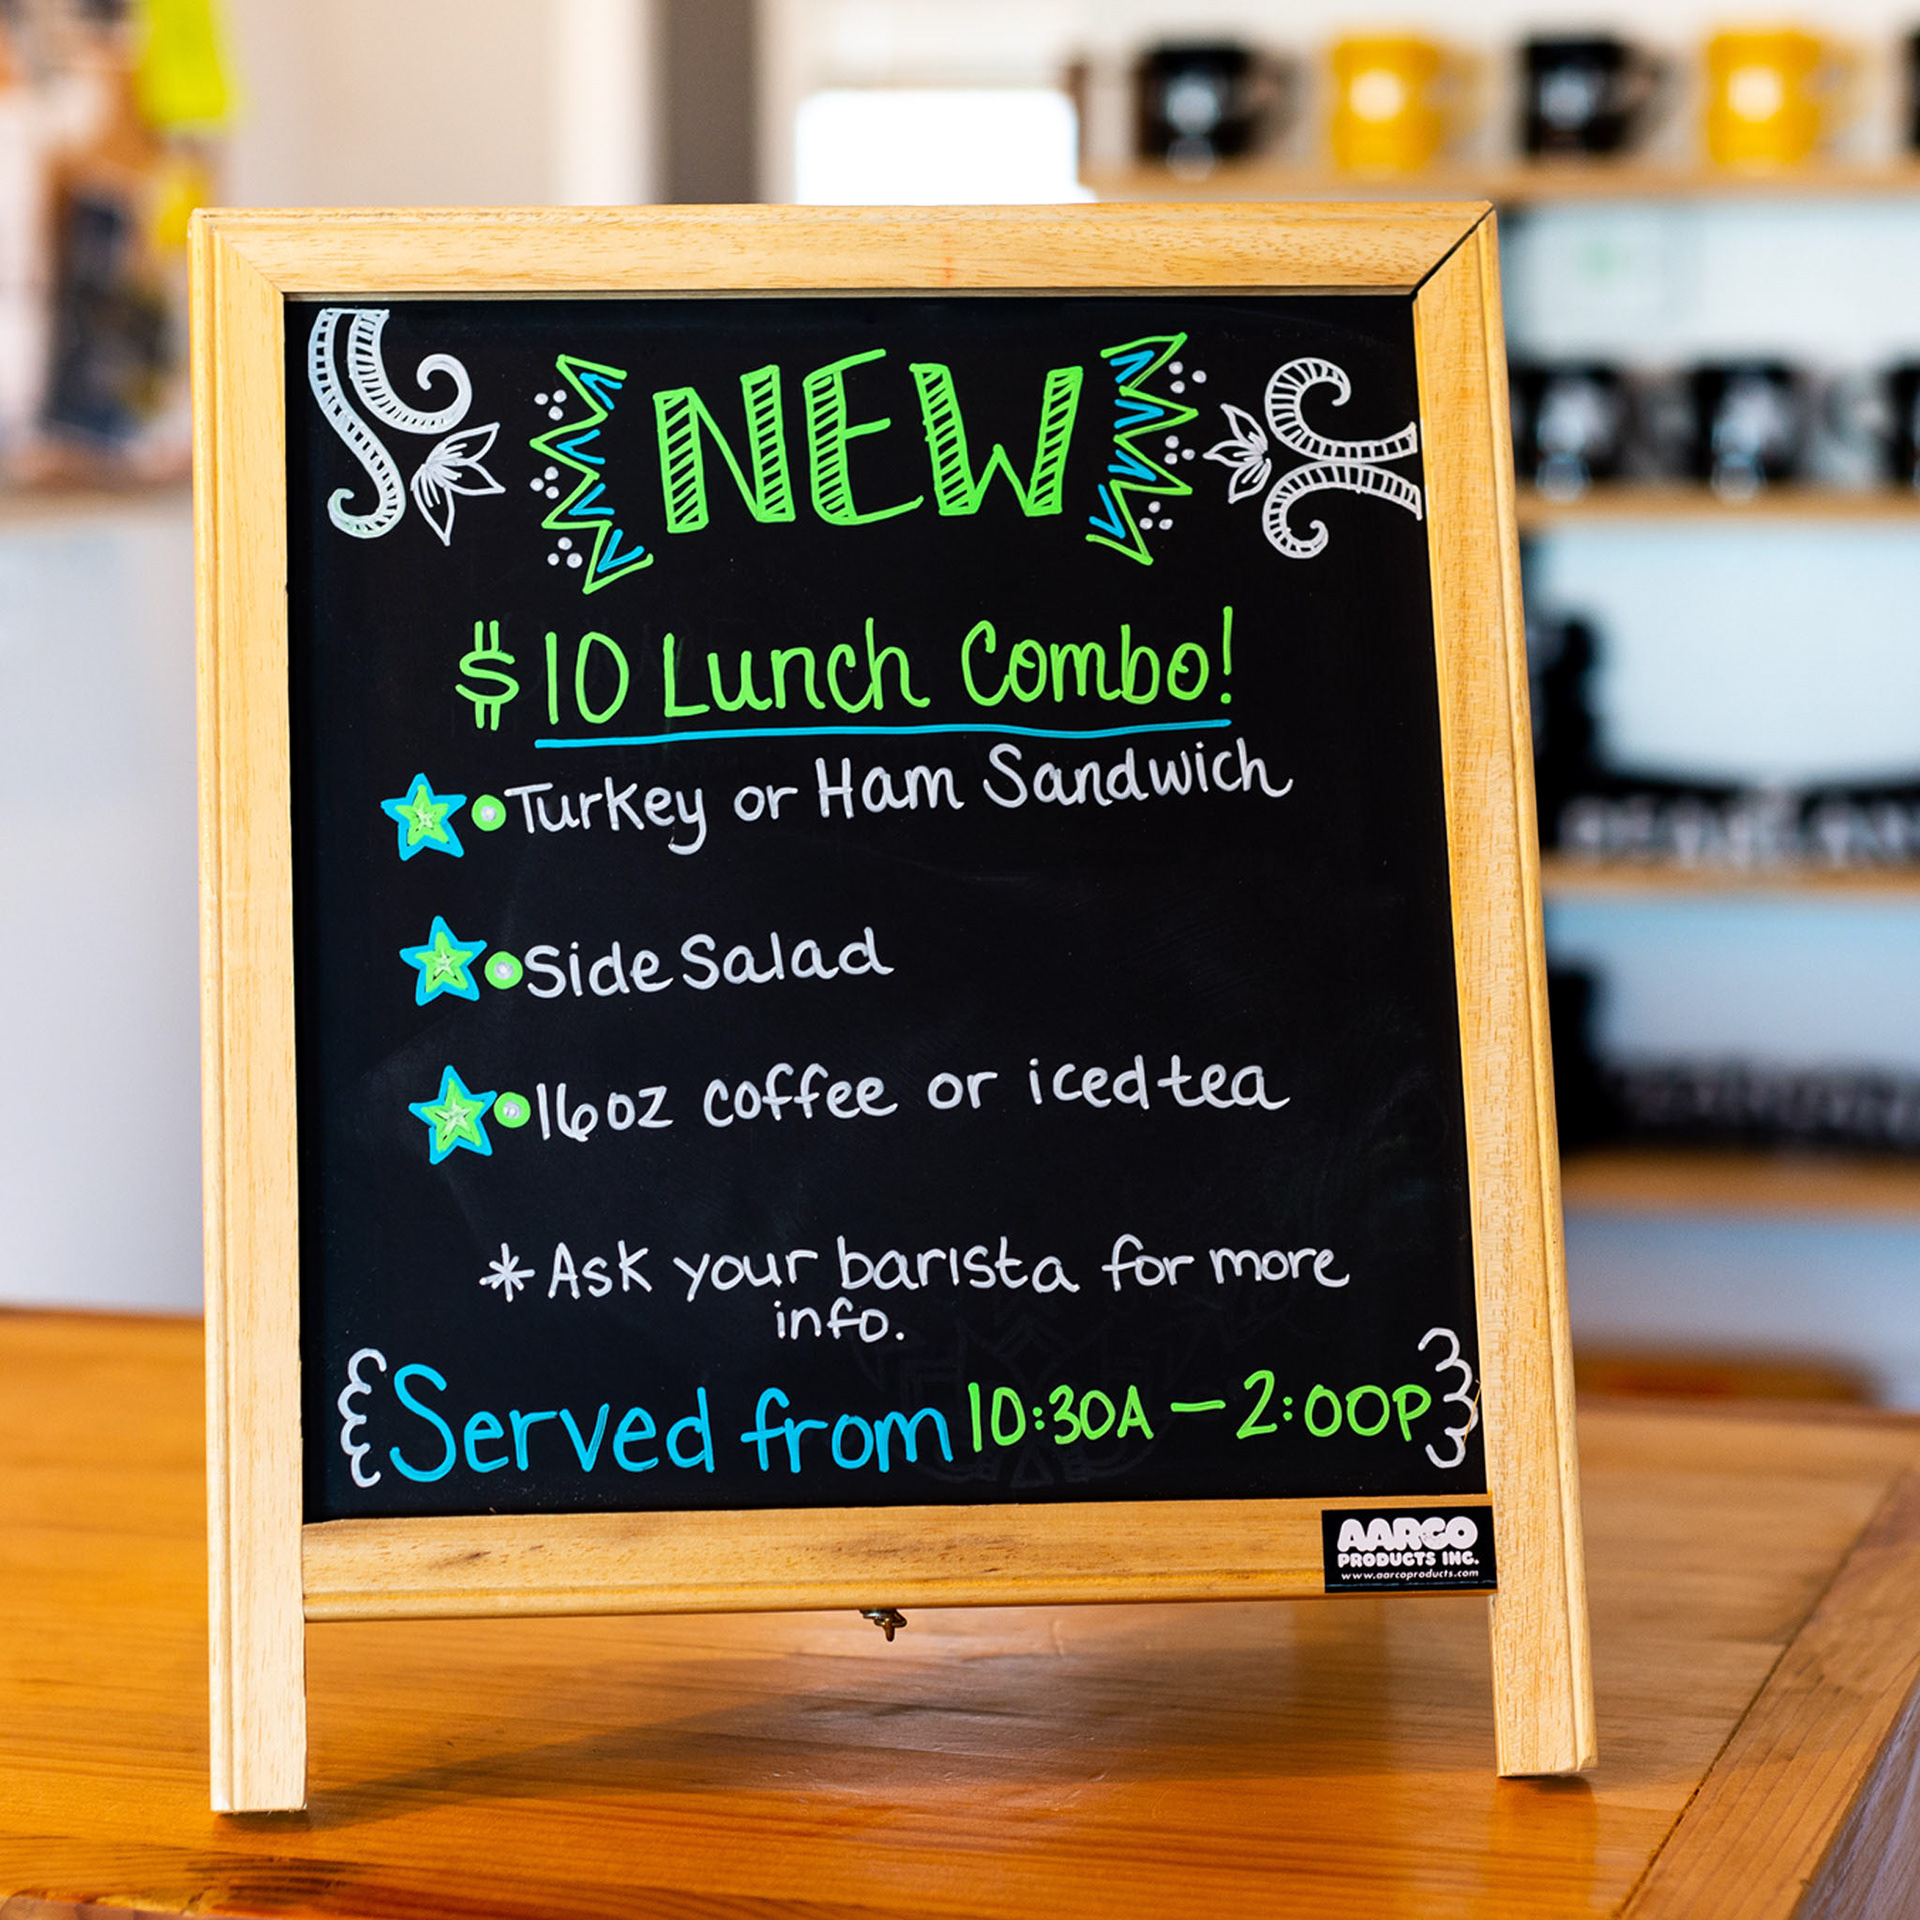 NEW
$10 Lunch Combo!
Turkey or Ham Sandwich
Side Salad
16oz coffee or iced tea
*Ask your barista for more
info.
Served from 10:30A - 2:00P
AARCO
PRODUCTS INC.
www.aarcoproducts.com